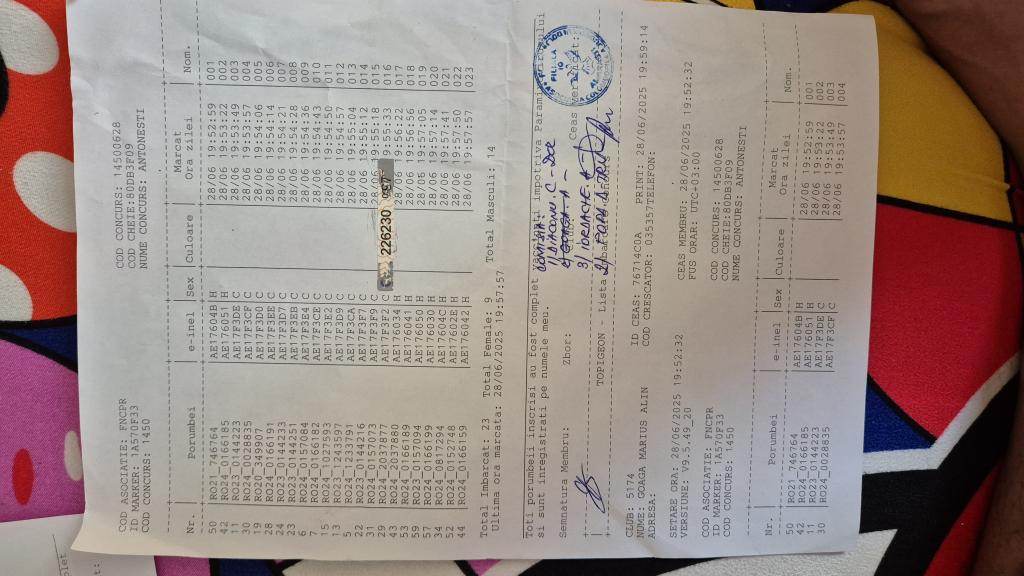 COD ASOCIATIE: FNCPR COD CONCURS: 14500628
ID MARKER: 1A570F33 COD CHEIE:80DB3F09
COD CONCURS: 1450 NUME CONCURS: ANTONESTI
Nr. Porumbei e-inel Sex Culoare Marcat Ora zilei Nom.
50 RO21_746764 AE17604B H 28/06 19:52:59 001
42 RO24_0166185 AE176051 H 28/06 19:53:22 002
11 RO23_0144223 AE17F3DE C 28/06 19:53:49 003
30 RO24_0028835 AE17F3CF C 28/06 19:53:57 004
19 RO20_349907 AE17F3D0 C 28/06 19:54:06 005
28 RO24_0166191 AE17F3EE C 28/06 19:54:14 006
24 RO23_0144253 AE17F3D7 C 28/06 19:54:21 007
23 RO23_0144251 AE17F3EB C 28/06 19:54:28 008
6 RO24_0157084 AE17F3E4 C 28/06 19:54:36 009
7 RO24_0166182 AE17F3CE C 28/06 19:54:43 010
15 RO22_1027593 AE17F3E2 C 28/06 19:54:50 011
13 RO24_1243597 AE17F3D9 C 28/06 19:54:57 012
5 RO24_1233791 AE17F3CA C 28/06 19:55:04 013
22 RO23_0144216 C 014
31 RO24_0157073 AE17F3F9 C 015
29 RO23_2037877 AE17F3F2 C 016
43 RO23_2037880 AE176034 H 28/06 19:56:22 017
53 RO24_0166189 AE176041 H 018
59 RO23_0157094 AE176050 H 28/06 19:57:05 019
57 RO24_0166199 AE176030 H 28/06 19:57:14 020
34 RO24_0817294 AE17604C H 28/06 19:57:41 021
52 RO24_0152748 AE17602E H 28/06 19:57:50 022
44 RO24_0166159 AE176042 H 28/06 19:57:57 023
226230
Total Imbarcat: 23 Total Female: 9 Total Masculi: 14
Ultima ora marcata: 28/06/2025 19:57:57
Toti porumbeii inscrisi au fost complet vaccinati impotriva Parami
si sunt inregistrati pe numele meu.
Semnatura Membru: Zbor: Ceas
TOPIGEON - Lista
CLUB: 5174 ID CEAS: 76714C0A PRINT: 28/06/2025 19:59:14
NUME: GOAGA MARIUS ALIN COD CRESCATOR: 035357TELEFON:
ADRESA:
SETARE ORA: 28/06/2025 19:52:32 CEAS MEMBRU: 28/06/2025 19:52:32
VERSIUNE: V9.5.49_20 FUS ORAR: UTC+03:00
COD ASOCIATIE: FNCPR COD CONCURS: 14500628
ID MARKER: 1A570F33 COD CHEIE:80DB3F09
COD CONCURS: 1450 NUME CONCURS: ANTONESTI
Nr. Porumbei e-inel Sex Culoare Marcat Ora zilei Nom.
50 RO21_746764 AE17604B H 28/06 19:52:59 001
42 RO24_0166185 AE176051 H 28/06 19:53:22 002
11 RO23_0144223 AE17F3DE C 28/06 19:53:49 003
30 RO24_0028835 AE17F3CF C 28/06 19:53:57 004